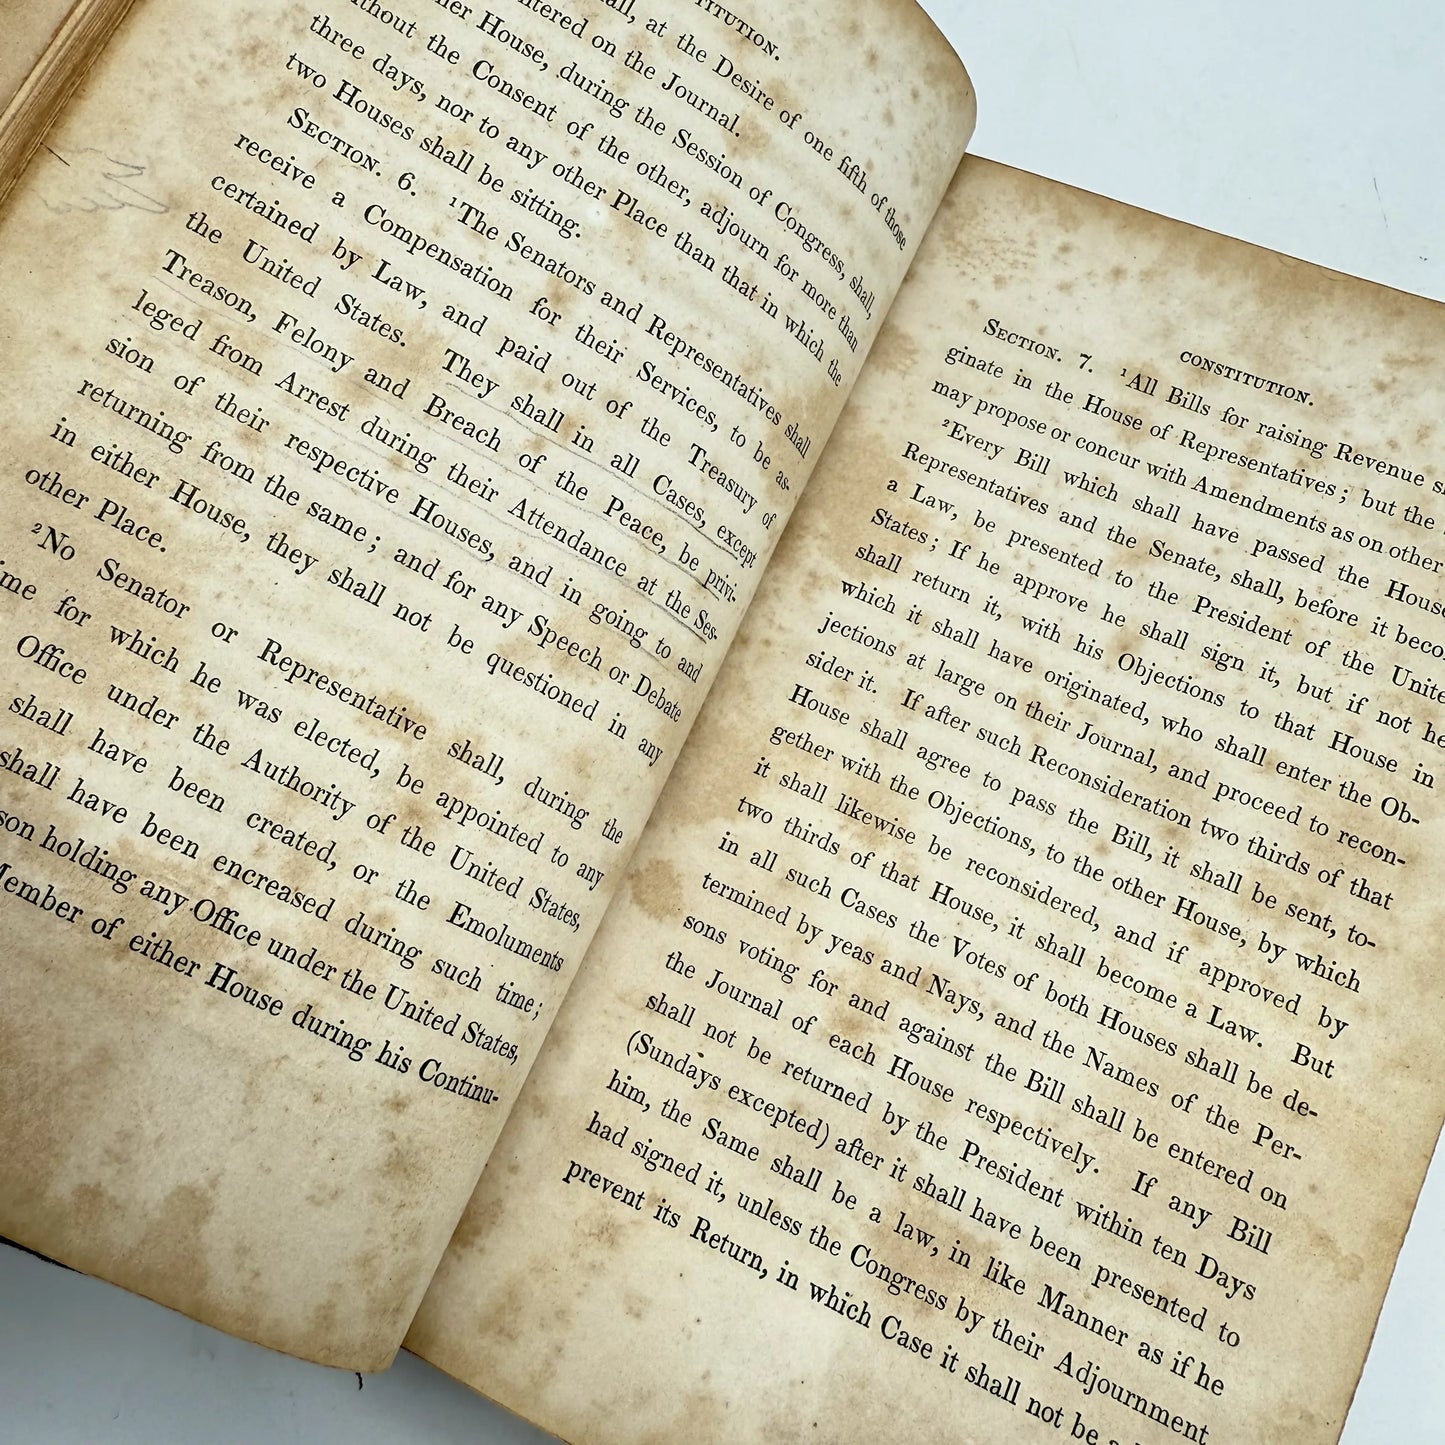 TITUTION.
all, at the Desire of one fifth of those
ntered on the Journal.
her House, during the Session of Congress, shall,
thout the Consent of the other, adjourn for more than
three days, nor to any other Place than that in which the
two Houses shall be sitting.
SECTION. 6. ¹The Senators and Representatives shall
receive a Compensation for their Services, to be as-
certained by Law, and paid out of the Treasury of
the United States. They shall in all Cases, except
Treason, Felony and Breach of the Peace, be privi-
leged from Arrest during their Attendance at the Ses-
sion of their respective Houses, and in going to and
returning from the same; and for any Speech or Debate
in either House, they shall not be questioned in any
other Place.
²No Senator or Representative shall, during the
ime for which he was elected, be appointed to any
Office under the Authority of the United States,
shall have been created, or the Emoluments
shall have been encreased during such time;
son holding any Office under the United States,
Member of either House during his Continu-
CONSTITUTION.
SECTION. 7. ¹All Bills for raising Revenue s
ginate in the House of Representatives; but the
may propose or concur with Amendments as on other
²Every Bill which shall have passed the House
Representatives and the Senate, shall, before it becom
a Law, be presented to the President of the Unite
States; If he approve he shall sign it, but if not he
shall return it, with his Objections to that House in
which it shall have originated, who shall enter the Ob-
jections at large on their Journal, and proceed to recon-
sider it. If after such Reconsideration two thirds of that
House shall agree to pass the Bill, it shall be sent, to-
gether with the Objections, to the other House, by which
it shall likewise be reconsidered, and if approved by
two thirds of that House, it shall become a Law. But
in all such Cases the Votes of both Houses shall be de-
termined by yeas and Nays, and the Names of the Per-
sons voting for and against the Bill shall be entered on
the Journal of each House respectively. If any Bill
shall not be returned by the President within ten Days
(Sundays excepted) after it shall have been presented to
him, the Same shall be a law, in like Manner as if he
had signed it, unless the Congress by their Adjournment
prevent its Return, in which Case it shall not be a